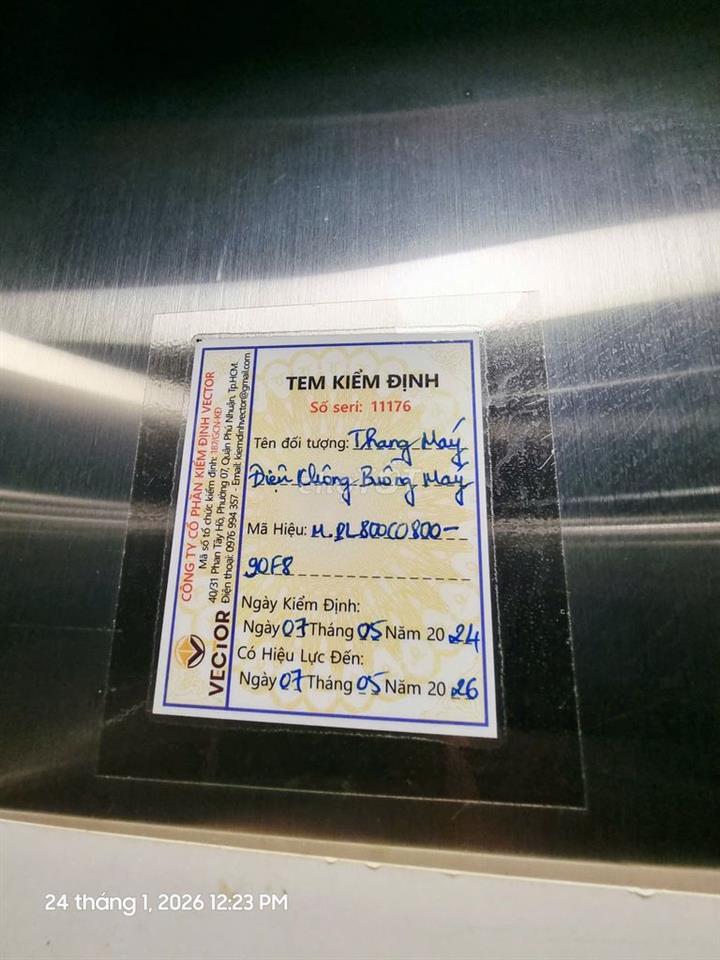 TEM KIỂM ĐỊNH
Số seri: 11176
Tên đối tượng: Thang Máy
Điện Không Buồng Máy
Mã Hiệu: M.PL800CO800-
90F8
Ngày Kiểm Định:
Ngày 07 Tháng 05 Năm 2024
Có Hiệu Lực Đến:
Ngày 07 Tháng 05 Năm 2026
CÔNG TY CỔ PHẦN KIỂM ĐỊNH VECTOR
Mã số tổ chức kiểm định: 187/GCN-KĐ
40/31 Phan Tây Hồ, Phường 07, Quận Phú Nhuận, Tp.HCM.
Điện thoại: 0976 994 357 - Email: kiemdinhvector@gmail.com
VECTOR
24 tháng 1, 2026 12:23 PM